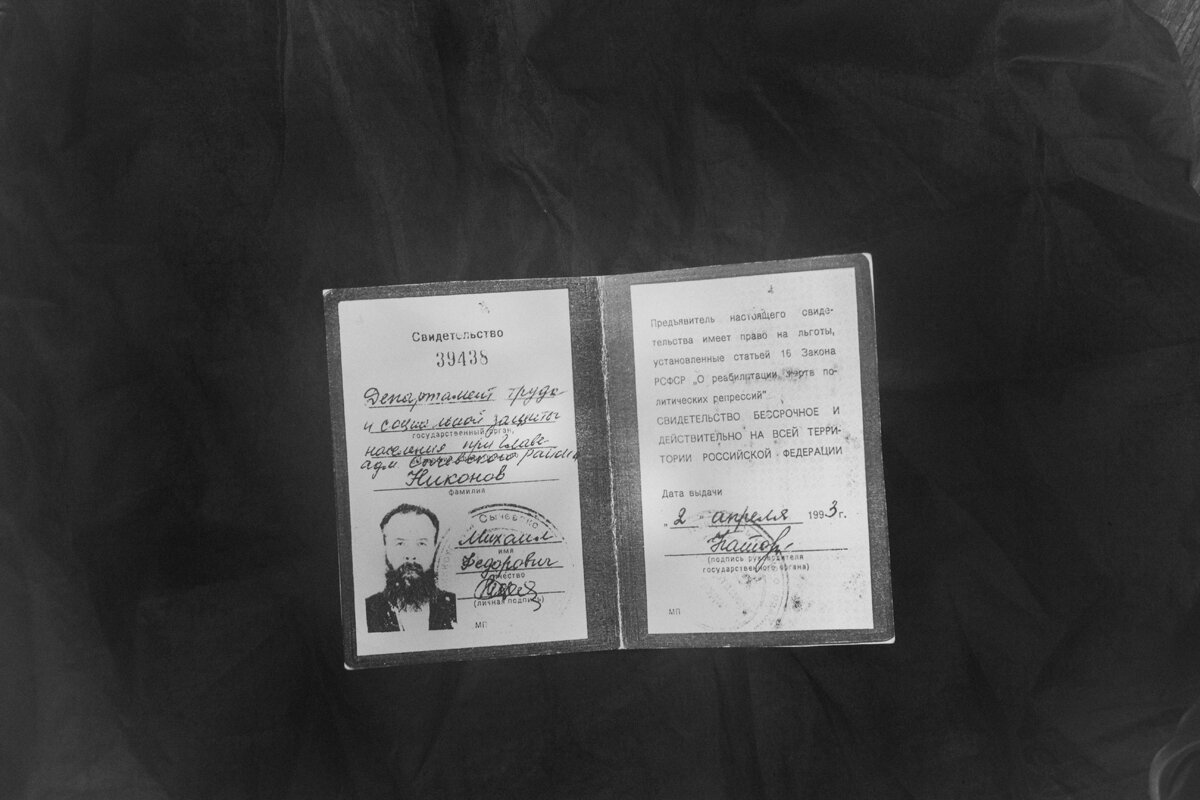 Свидетельство
39438
Департамент труда
и социальной защиты
государственный орган,
населения при главе
адм Сычевского района
Никонов
фамилия
Сычевско
Михаил
имя
Федорович
отчество
(личная подпись)
МП
Предъявитель настоящего свиде-
тельства имеет право на льготы,
установленные статьей 16 Закона
РСФСР „О реабилитации жертв по-
литических репрессий"
СВИДЕТЕЛЬСТВО БЕССРОЧНОЕ И
ДЕЙСТВИТЕЛЬНО НА ВСЕЙ ТЕРРИ-
ТОРИИ РОССИЙСКОЙ ФЕДЕРАЦИИ
Дата выдачи
„2" апреля 1993г.
(подпись руководителя
государственного органа)
МП